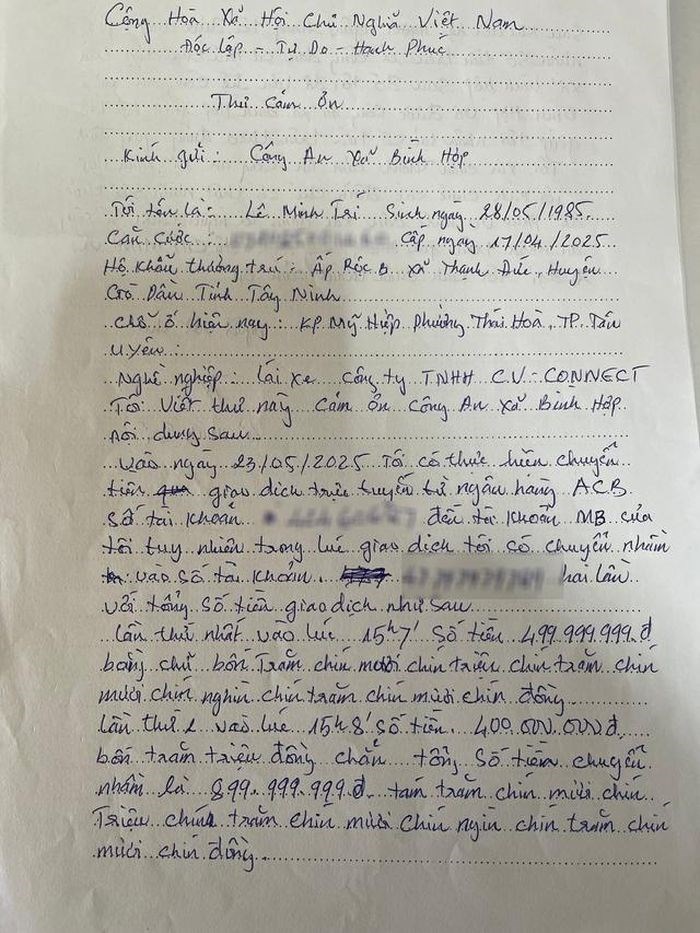 Cộng Hoà Xã Hội Chủ Nghĩa Việt Nam
Độc lập - Tự Do - Hạnh Phúc
Thư cảm ơn
Kính gửi : Công An Xã Bình Hợp
Tôi tên là : Lê Minh Trí Sinh ngày 28/05/1985.
Căn cước : Cấp ngày 17/04/2025
Hộ khẩu thường trú : Ấp Rộc B xã Thạnh Đức, Huyện
Gò Dầu Tỉnh Tây Ninh
Chỗ ở hiện nay : KP Mỹ Hiệp Phường Thái Hoà, TP. Tân
Uyên :
Nghề nghiệp : lái xe công ty TNHH C.V-CONNECT
Tôi Viết thư này Cảm ơn Công An Xã Bình Hợp
nội dung sau
Vào ngày 23/05/2025 Tôi có thực hiện chuyển
tiền qua giao dịch trực tuyến từ ngân hàng ACB
Số tài khoản đến tài khoản MB của
tôi tuy nhiên trong lúc giao dịch tôi có chuyển nhầm
vào số tài khoản hai lần
với tổng số tiền giao dịch như sau
lần thứ nhất vào lúc 15h7' số tiền 499.999.999.đ
bằng chữ bốn Trăm chín mươi chín triệu chín trăm chín
mươi chín nghìn chín trăm chín mươi chín đồng
lần thứ 2 vào lúc 15h8' số tiền 400.000.000đ
bốn trăm triệu đồng chẵn tổng số tiền chuyển
nhầm là 899.999.999.đ. tám trăm chín mươi chín
Triệu chín trăm chín mươi chín ngìn chín trăm chín
mươi chín đồng